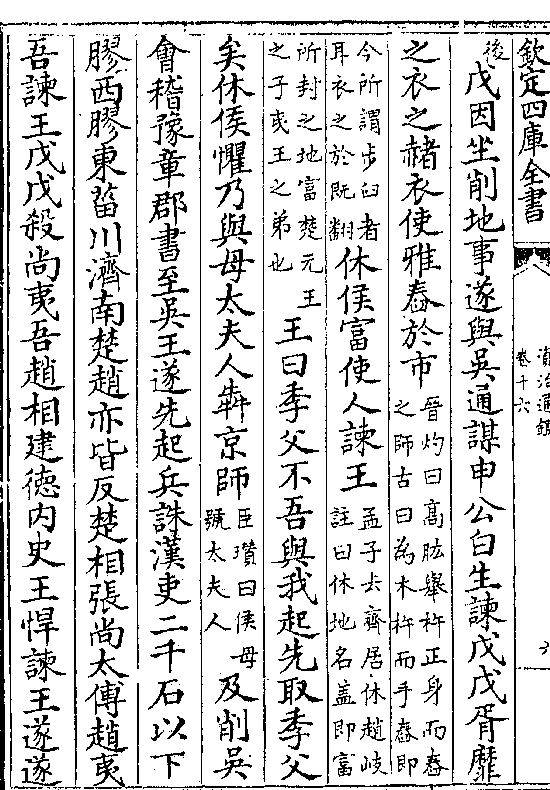 欽定四庫全書
資治通鑑
卷十六
六
後戊因坐削地事遂與吳通謀申公白生諫戊戊胥靡
之衣之赭衣使雅舂於市
晉灼曰高肱舉杵正身而舂
之師古曰為木杵而手舂即
今所謂步臼者
耳衣之於既翻
休侯富使人諫王
孟子去齊居休趙岐
註曰休地名盖即富
所封之地富楚元王
之子夷王之弟也
王曰季父不吾與我起先取季父
矣休侯懼乃與母太夫人犇京師
臣瓚曰侯母
號太夫人
及削吳
會稽豫章郡書至吳王遂先起兵誅漢吏二千石以下
膠西膠東菑川濟南楚趙亦皆反楚相張尚太傅趙夷
吾諫王戊戊殺尚夷吾趙相建徳内史王悍諫王遂遂